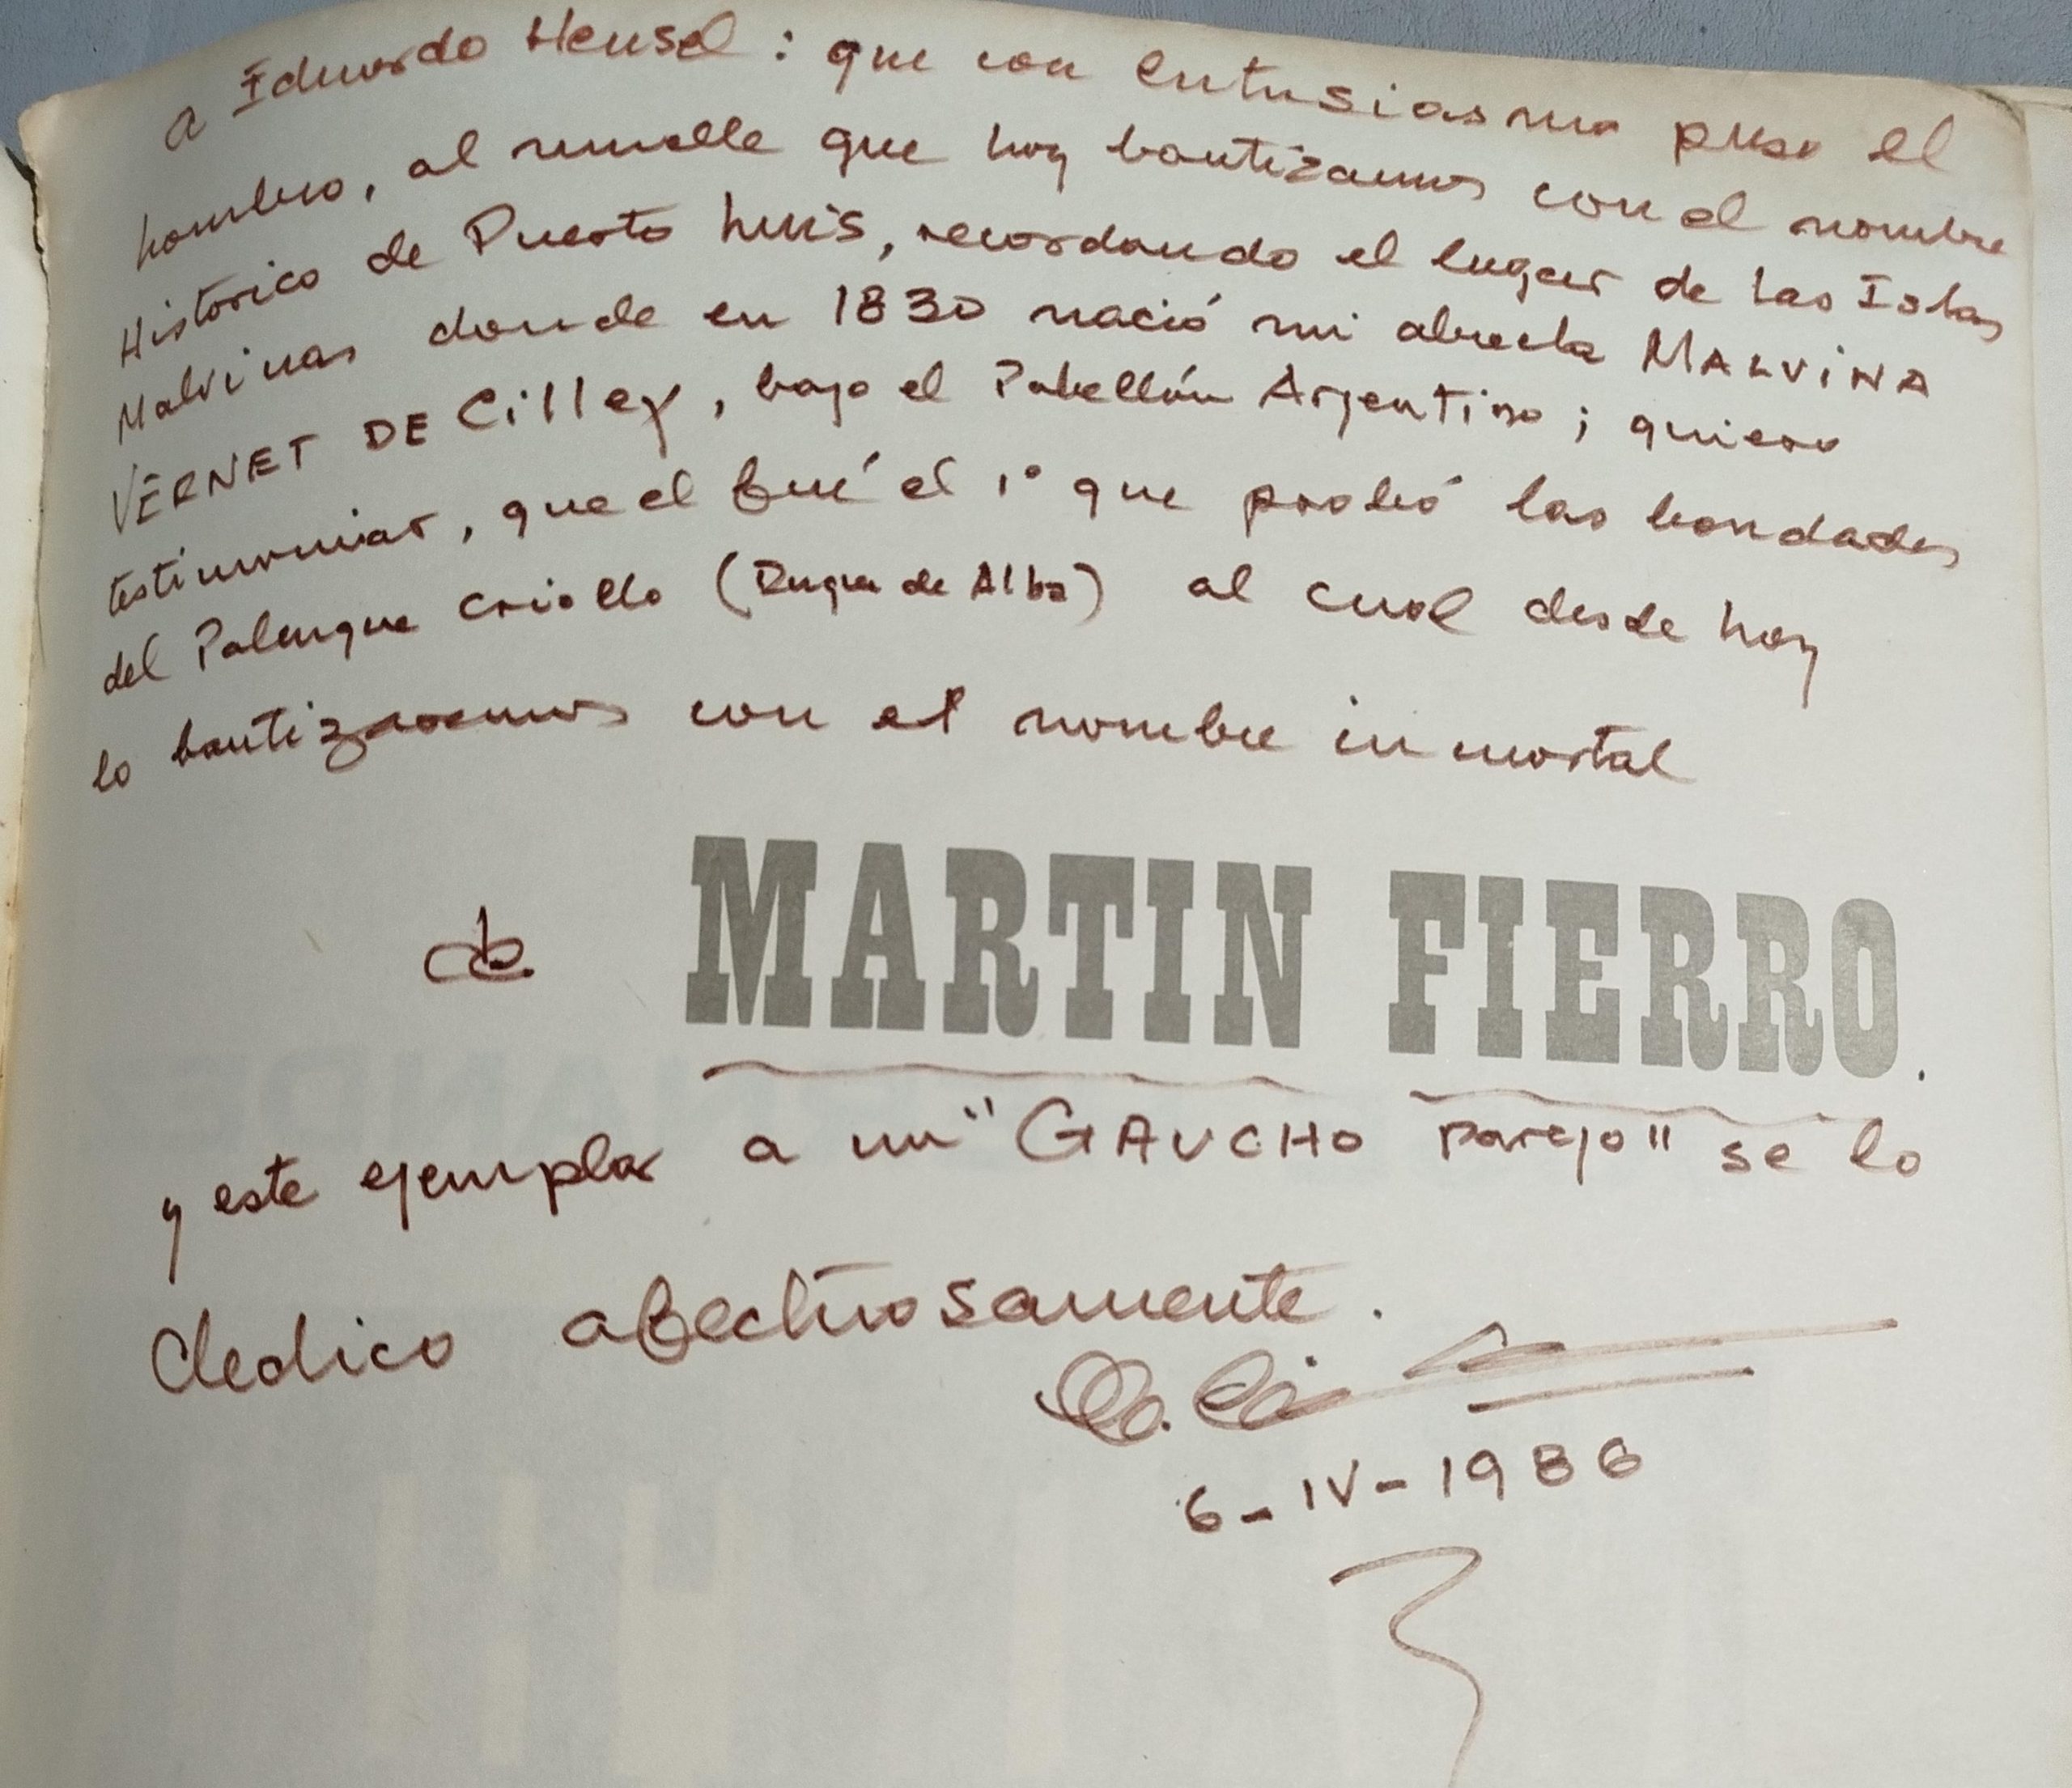 A Eduardo Hensel: que con entusiasmo puso el
hombro, al muelle que hoy bautizamos con el nombre
Historico de Puerto Luis, recordando el lugar de las Islas
Malvinas donde en 1830 nació mi abuela MALVINA
VERNET DE Cilley, bajo el Pabellón Argentino; quiero
testimoniar, que el fué el 1° que probó las bondades
del Palenque criollo (Duque de Alba) al cual desde hoy
lo bautizaremos con el nombre inmortal
de MARTIN FIERRO.
y este ejemplar a un "GAUCHO parejo" se lo
dedico afectuosamente.
6-IV-1986